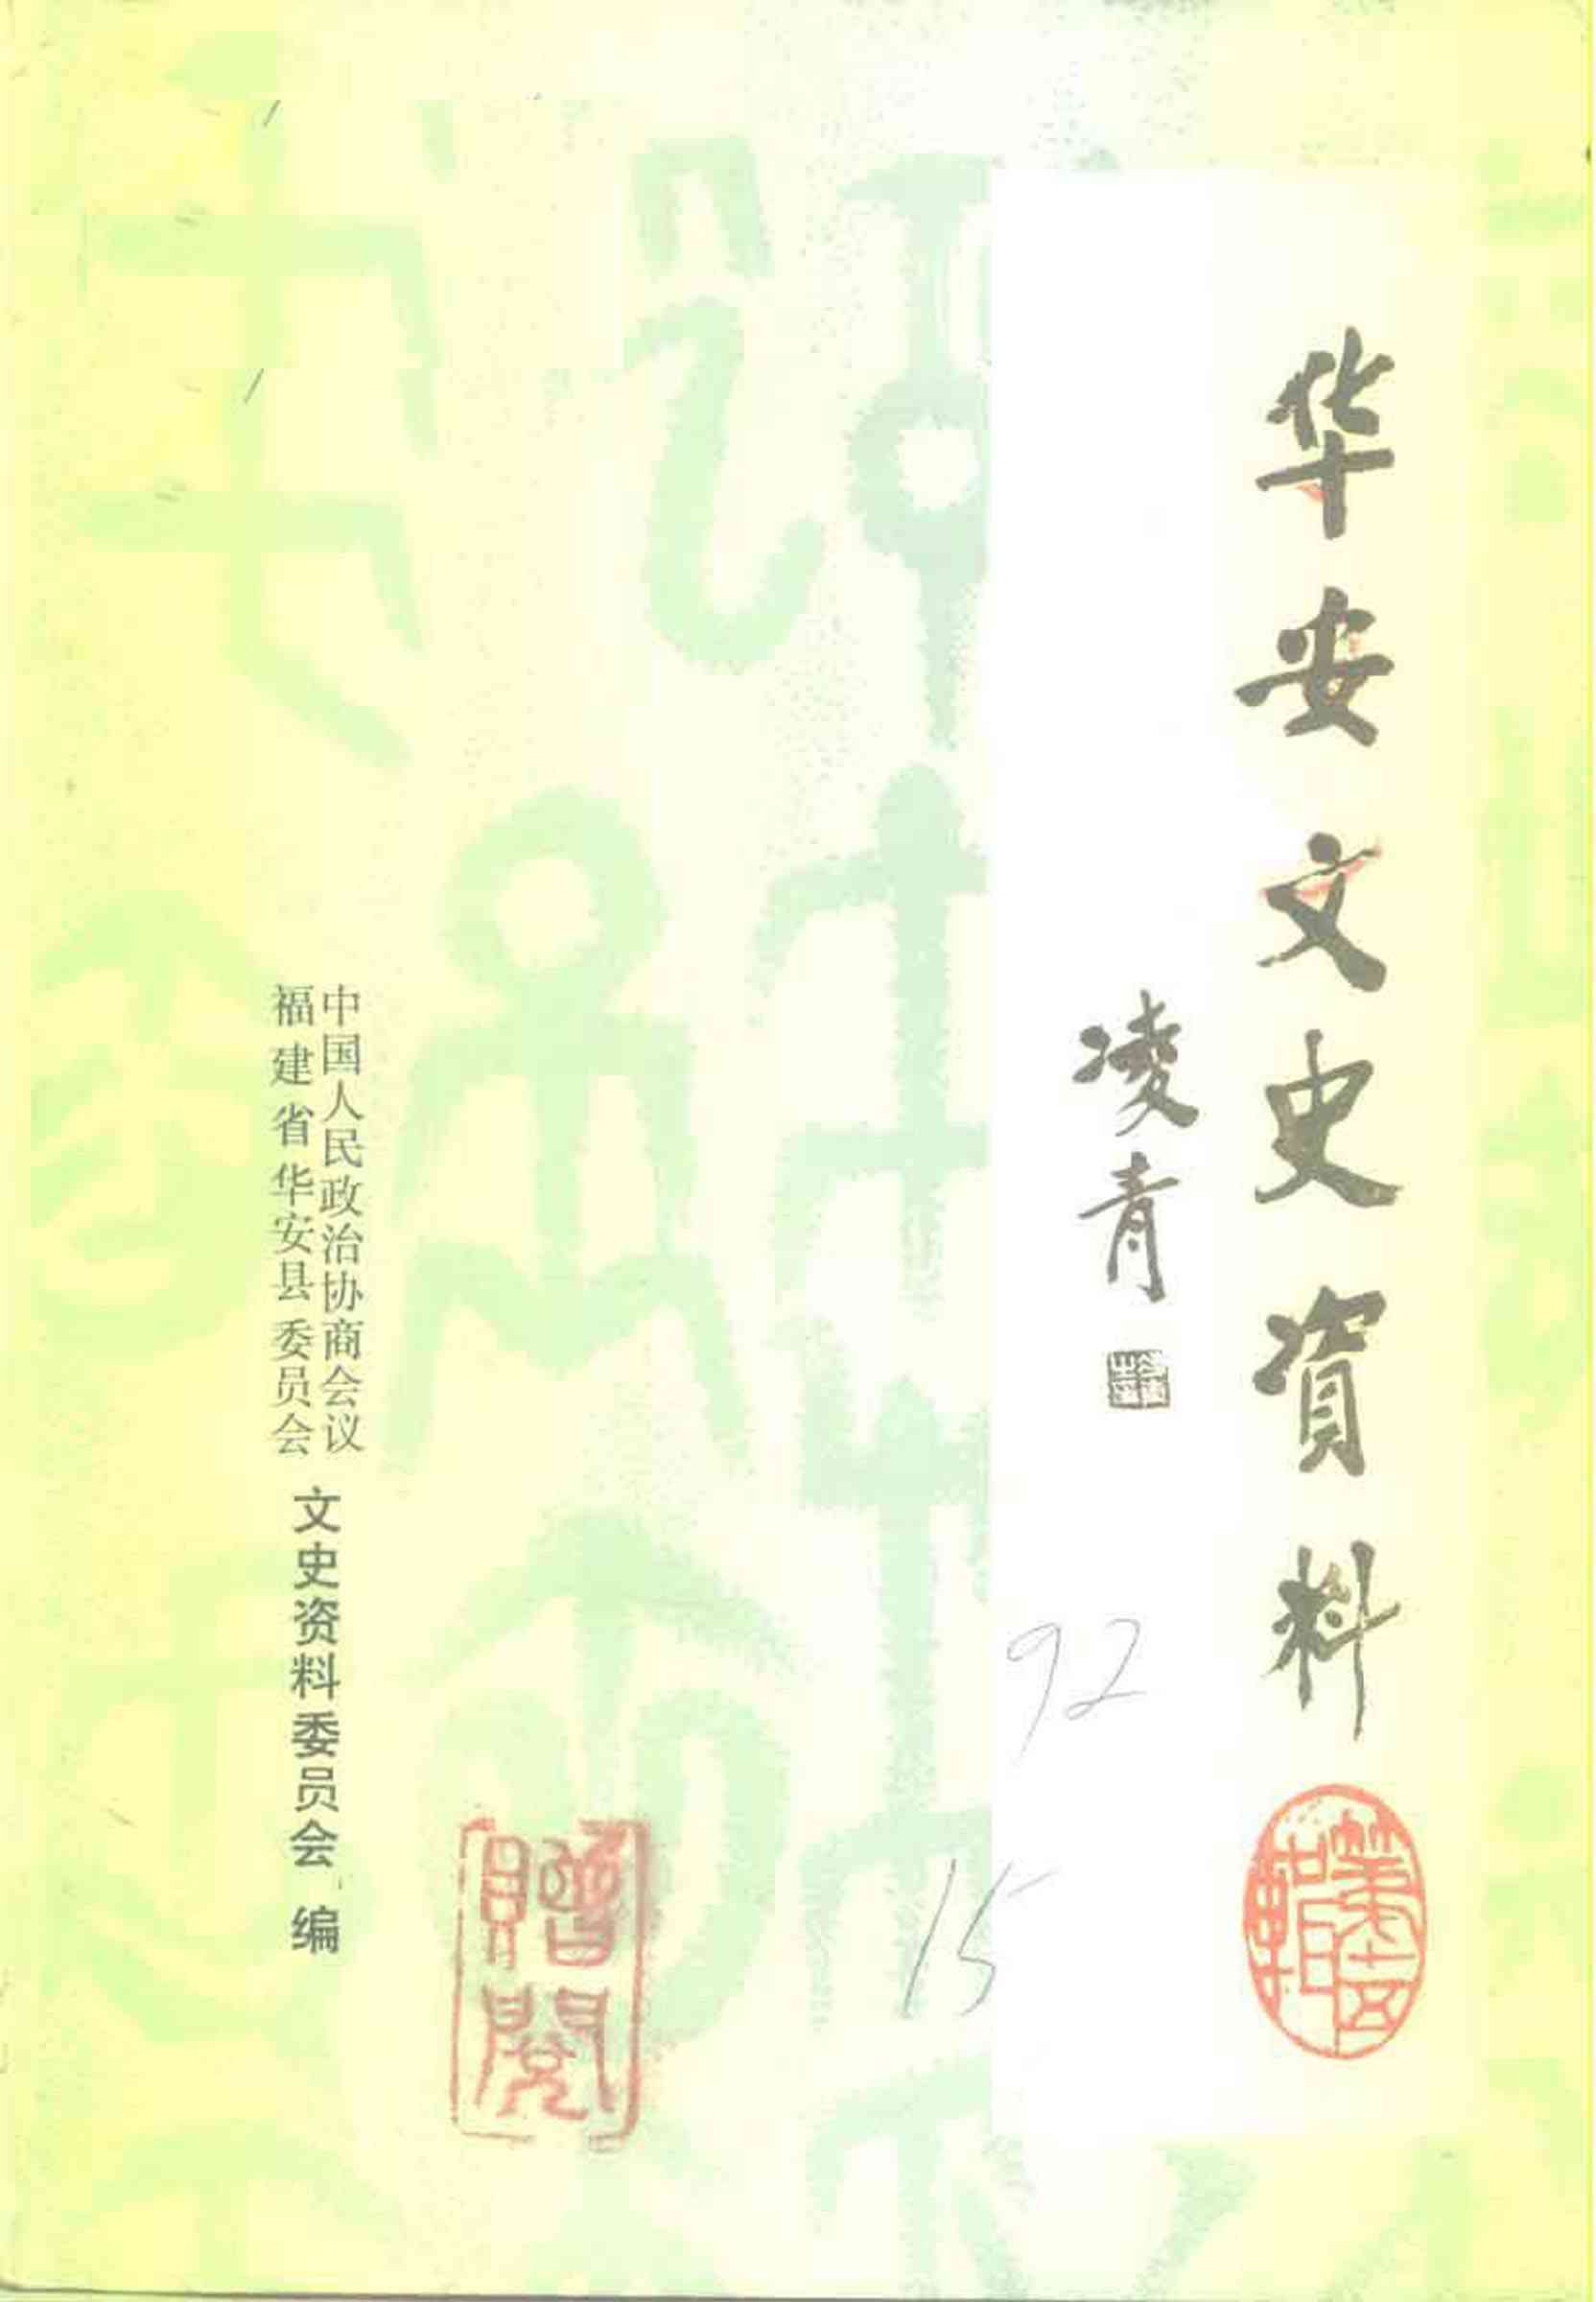 华安文史資料
第十五辑
凌青
92
15
中国人民政治协商会议
福建省华安县委员会
文史资料委员会 编
赠閱